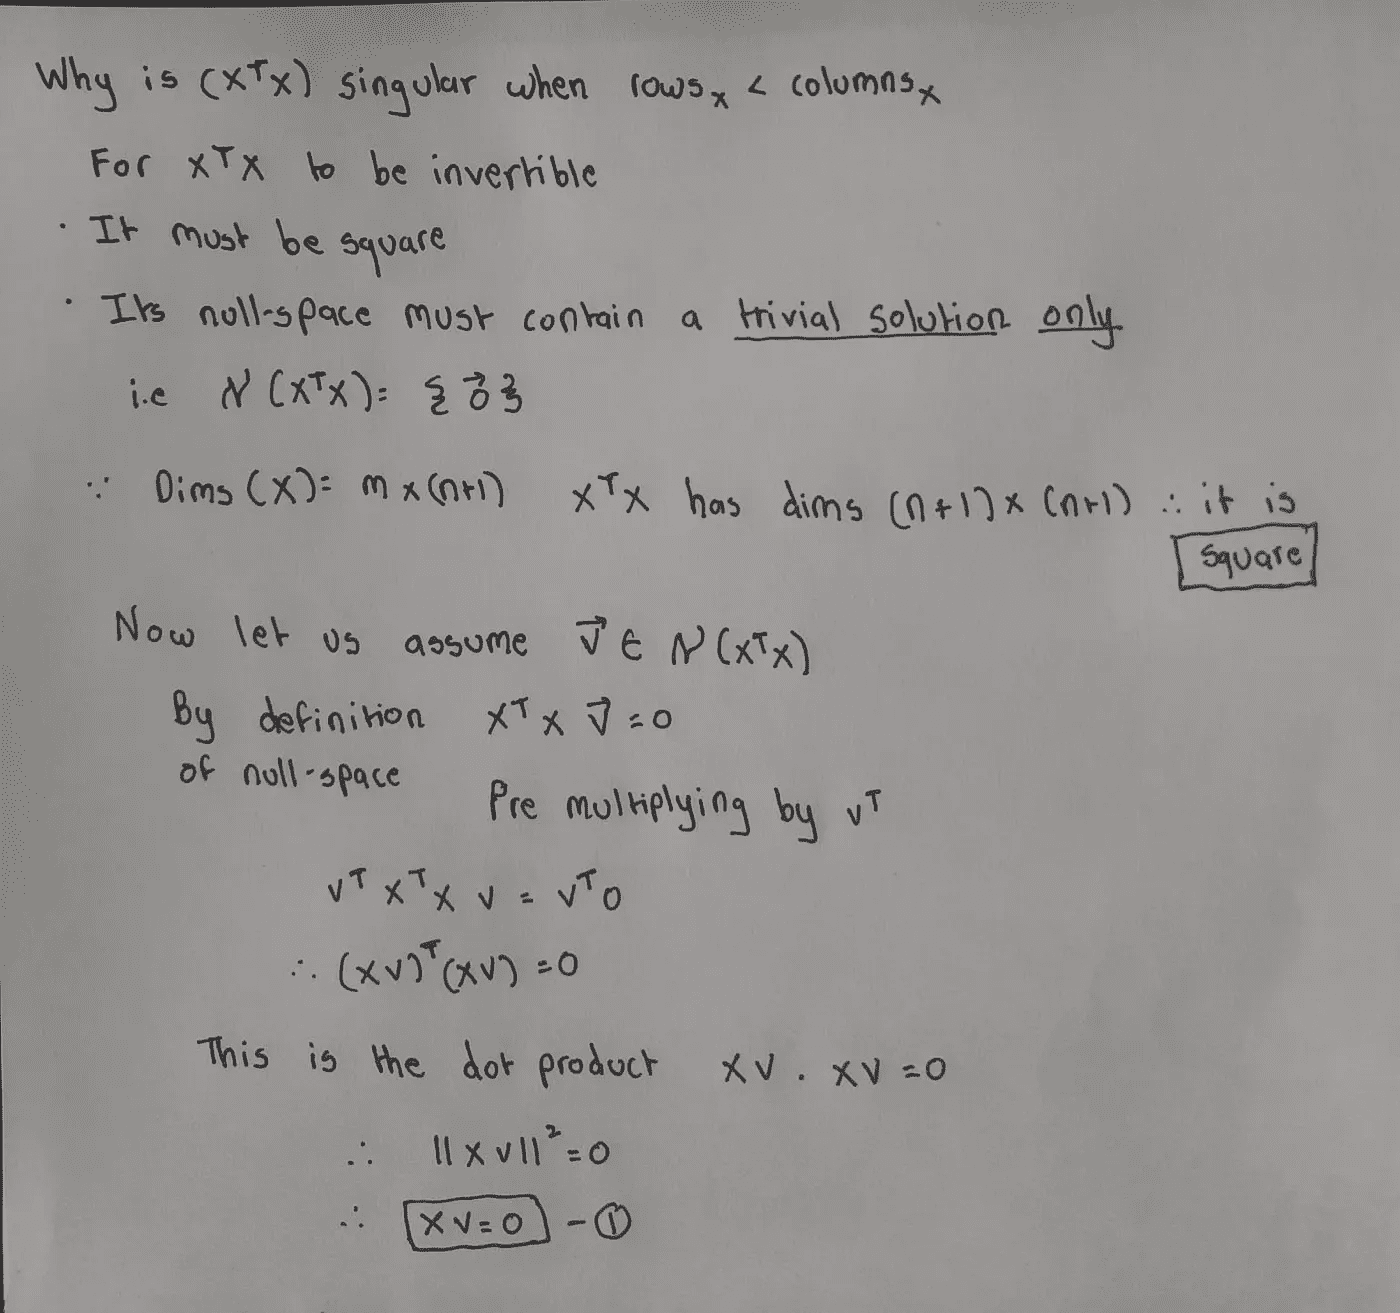 Why is (XᵀX) singular when rowsₓ < columnsₓ
For XᵀX to be invertible
· It must be square
· Its null-space must contain a trivial solution only
i.e N(XᵀX) = {0⃗}
∵ Dims (X) = m x (n+1) XᵀX has dims (n+1) x (n+1) ∴ it is
square
Now let us assume v⃗ ∈ N(XᵀX)
By definition XᵀX v⃗ = 0
of null-space
Pre multiplying by vᵀ
vᵀXᵀX v = vᵀ0
∴ (Xv)ᵀ(Xv) = 0
This is the dot product Xv . Xv = 0
∴ ||Xv||² = 0
∴ Xv = 0 - ①